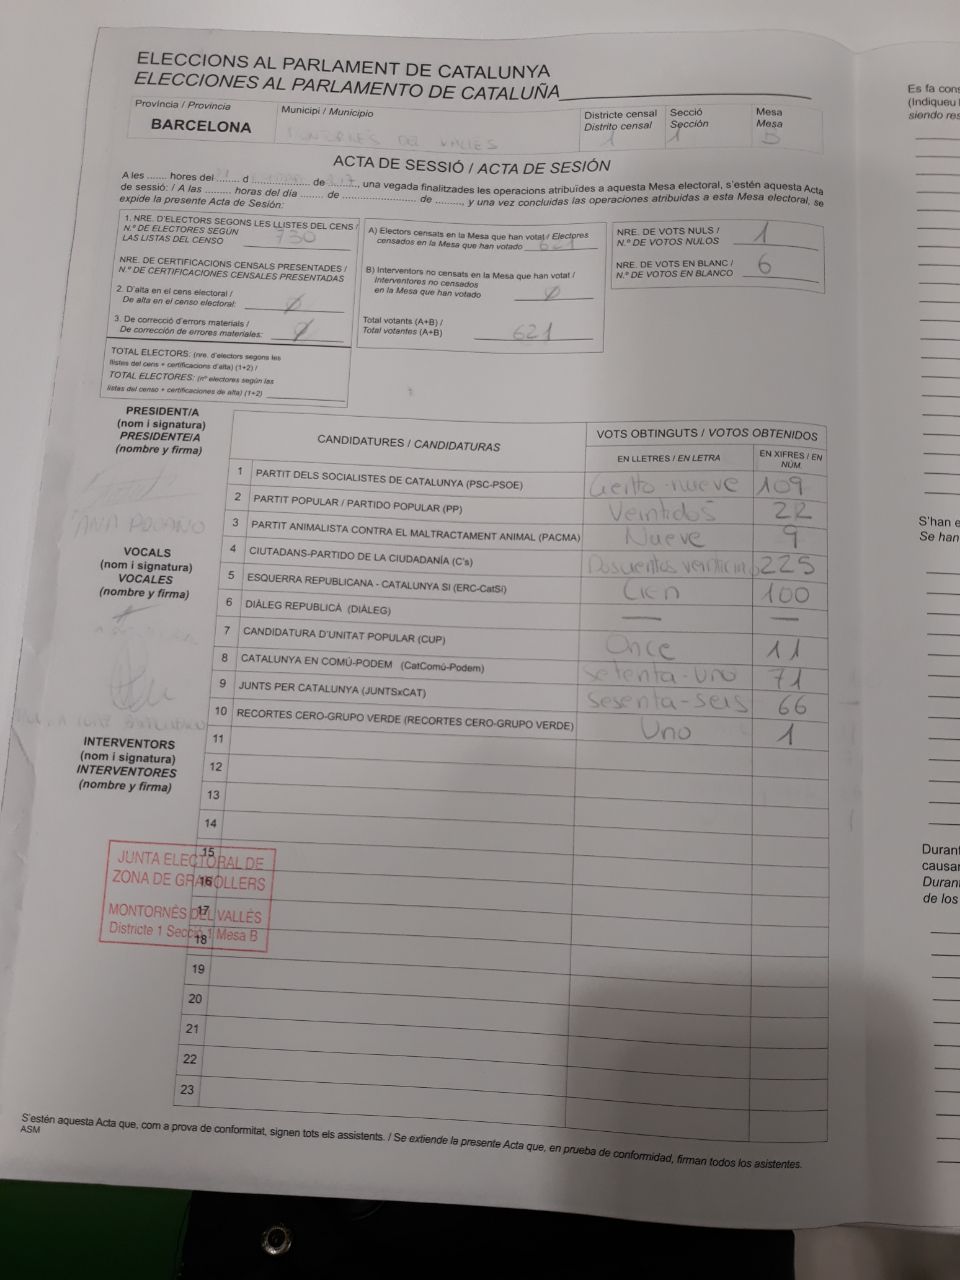 ELECCIONS AL PARLAMENT DE CATALUNYA
ELECCIONES AL PARLAMENTO DE CATALUÑA
Província / Provincia
BARCELONA
Municipi / Municipio
MONTORNÉS DEL VALLÈS
Districte censal
Distrito censal
1
Secció
Sección
1
Mesa
Mesa
ACTA DE SESSIÓ / ACTA DE SESIÓN
A les ....... hores del ....... d ................... de ........, una vegada finalitzades les operacions atribuïdes a aquesta Mesa electoral, s'estén aquesta Acta
de sessió: / A las ......... hores del día ........ de ........................ de ........., y una vez concluidas las operaciones atribuidas a esta Mesa electoral, se
expide la presente Acta de Sesión:
1. NRE. D'ELECTORS SEGONS LES LLISTES DEL CENS /
N.º DE ELECTORES SEGÚN
LAS LISTAS DEL CENSO 730
NRE. DE CERTIFICACIONS CENSALS PRESENTADES /
N.º DE CERTIFICACIONES CENSALES PRESENTADAS
2. D'alta en el cens electoral /
De alta en el censo electoral: Ø
3. De correcció d'errors materials /
De corrección de errores materiales: Ø
TOTAL ELECTORS: (nre. d'electors segons les
llistes del cens + certificacions d'alta) (1+2) /
TOTAL ELECTORES: (nº electores según las
listas del censo + certificaciones de alta) (1+2)
A) Electors censats en la Mesa que han votat / Electores
censados en la Mesa que han votado 621
B) Interventors no censats en la Mesa que han votat /
Interventores no censados
en la Mesa que han votado Ø
Total votants (A+B) /
Total votantes (A+B) 621
NRE. DE VOTS NULS /
N.º DE VOTOS NULOS 1
NRE. DE VOTS EN BLANC /
N.º DE VOTOS EN BLANCO 6
PRESIDENT/A
(nom i signatura)
PRESIDENTE/A
(nombre y firma)
ANA
VOCALS
(nom i signatura)
VOCALES
(nombre y firma)
INTERVENTORS
(nom i signatura)
INTERVENTORES
(nombre y firma)
CANDIDATURES / CANDIDATURAS
VOTS OBTINGUTS / VOTOS OBTENIDOS
EN LLETRES / EN LETRA
EN XIFRES / EN
NÚM.
1 PARTIT DELS SOCIALISTES DE CATALUNYA (PSC-PSOE) Ciento-nueve 109
2 PARTIT POPULAR / PARTIDO POPULAR (PP) Veintidós 22
3 PARTIT ANIMALISTA CONTRA EL MALTRACTAMENT ANIMAL (PACMA) Nueve 9
4 CIUTADANS-PARTIDO DE LA CIUDADANÍA (C's) Doscientos veinticinco 225
5 ESQUERRA REPUBLICANA - CATALUNYA SI (ERC-CatSí) Cien 100
6 DIÀLEG REPUBLICÀ (DIÀLEG) — —
7 CANDIDATURA D'UNITAT POPULAR (CUP) Once 11
8 CATALUNYA EN COMÚ-PODEM (CatComú-Podem) Setenta-uno 71
9 JUNTS PER CATALUNYA (JUNTSxCAT) Sesenta-seis 66
10 RECORTES CERO-GRUPO VERDE (RECORTES CERO-GRUPO VERDE) Uno 1
11
12
13
14
15
16
17
18
19
20
21
22
23
JUNTA ELECTORAL DE
ZONA DE GRANOLLERS
MONTORNÈS DEL VALLÈS
Districte 1 Secció 1 Mesa B
S'estén aquesta Acta que, com a prova de conformitat, signen tots els assistents. / Se extiende la presente Acta que, en prueba de conformidad, firman todos los asistentes.
ASM
Es fa cons
(Indiqueu
siendo res
S'han e
Se han
Durant
causar
Durant
de los